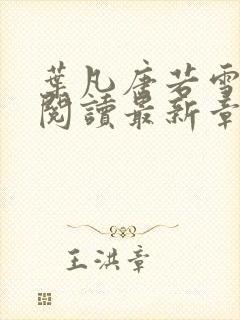 葉凡唐若雪
閱讀最新章
王洪章